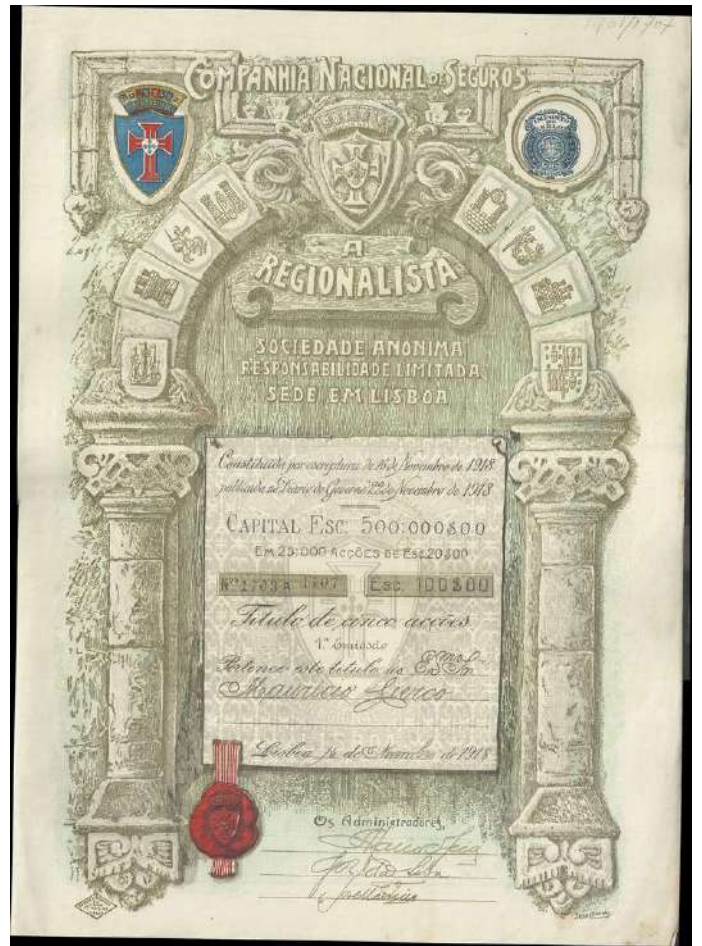 COMPANHIA NACIONAL DE SEGUROS
A
REGIONALISTA
SOCIEDADE ANONIMA
RESPONSABILIDADE LIMITADA
SÉDE EM LISBOA
Constituida por escriptura de 16 de Novembro de 1918
publicada no Diario do Governo de Novembro de 1918
CAPITAL ESC. 500:000$00
EM 25:000 ACÇÕES DE ESC. 20$00
Nos 1703 A 1707 ESC. 100$00
Titulo de cinco acções
1.ª Emissão
Pertence este titulo ao Exmo. Sr.
Lisboa, de Novembro de 1918
Os Administradores,